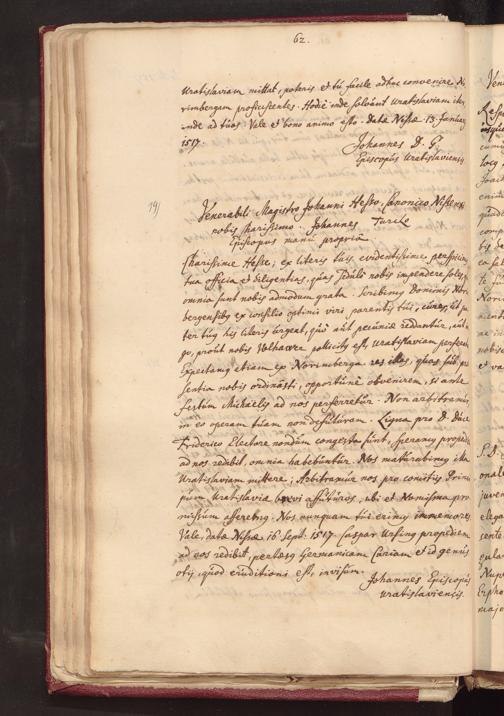 62.
Uratislaviam mittat, poteris et tú facile adhuc convenire No-
rimbergam proficiscentes. Hodie inde solvúnt Uratislaviam iter,
inde ad túos. Vale et bono animo esto. Data Nissæ 13. Januar
1517.
Johannes D. G.
Episcopus Uratislaviensis
19)
Venerabili Magistro Johanni Hesso, Canonico Nissensi
nobis charissimo. Johannes Turzo
Episcopus manú propriâ
Charissime Hesse, ex literis túis evidentissime perspicimus
tua officia et diligentias, qúas sedulò nobis impendere soles,
omnia sunt nobis admodum grata. Scribimus Dominis Nor-
bergensibus ex consilio optimi viri parentis túi, út pa-
ter túus his literis úrgeat, qúo aút pecuniæ reddantur, aút
proút nobis Volhamer pollicitus est, Uratislaviam perferantur
Expectamus etiam ex Norimberga res illas, qúas súb præ-
sentia nobis ordinasti, opportúne obvenirent, si ante
festúm Michaelis ad nos perferretúr. Non arbitramúr
in eo operam túam non defúturam. Ligna pro D. Dúce
Friderico Electore nondúm congesta súnt, speramus propediem
ad nos redibit, omnia habebúntúr. Nos matúrabimus iter
Uratislaviam mittere; Arbitramúr nos pro comitiis Princi-
pum Uratislaviæ brevi affútúros, ubi et Nomisma pro-
missúm afferemus. Nos nunquam túi erimus immemores
Vale, data Nissæ 16 Sept. 1517. Caspar Ursinus propediem
ad vos redibit, pertæsus Germanicam Curiam et id genús
otij, qúod eruditioni est, invisúm.
Johannes Episcopus
Uratislaviensis.